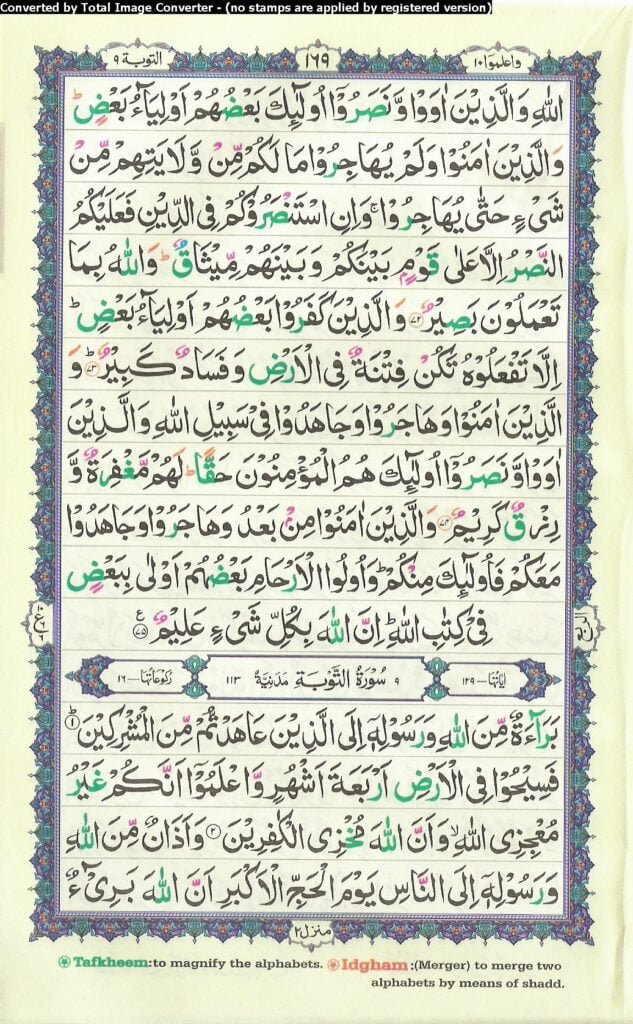 Converted by Total Image Converter - (no stamps are applied by registered version)
واعلموا ١٠ ١٦٩ التوبة ٩
اللّٰهِ وَالَّذِيْنَ اٰوَوْا وَّنَصَرُوْۤا اُولٰٓئِكَ بَعْضُهُمْ اَوْلِيَآءُ بَعْضٍ ؕ
وَالَّذِيْنَ اٰمَنُوْا وَلَمْ يُهَاجِرُوْا مَا لَكُمْ مِّنْ وَّلَايَتِهِمْ مِّنْ
شَيْءٍ حَتّٰى يُهَاجِرُوْا ۚ وَاِنِ اسْتَنْصَرُوْكُمْ فِى الدِّيْنِ فَعَلَيْكُمُ
النَّصْرُ اِلَّا عَلٰى قَوْمٍۭ بَيْنَكُمْ وَبَيْنَهُمْ مِّيْثَاقٌ ؕ وَاللّٰهُ بِمَا
تَعْمَلُوْنَ بَصِيْرٌ ﴿۷۲﴾ وَالَّذِيْنَ كَفَرُوْا بَعْضُهُمْ اَوْلِيَآءُ بَعْضٍ ؕ
اِلَّا تَفْعَلُوْهُ تَكُنْ فِتْنَةٌ فِى الْاَرْضِ وَفَسَادٌ كَبِيْرٌ ؕ ﴿۷۳﴾ وَ
الَّذِيْنَ اٰمَنُوْا وَهَاجَرُوْا وَجَاهَدُوْا فِىْ سَبِيْلِ اللّٰهِ وَالَّذِيْنَ
اٰوَوْا وَّنَصَرُوْۤا اُولٰٓئِكَ هُمُ الْمُؤْمِنُوْنَ حَقًّا ؕ لَهُمْ مَّغْفِرَةٌ وَّ
رِزْقٌ كَرِيْمٌ ﴿۷۴﴾ وَالَّذِيْنَ اٰمَنُوْا مِنْۢ بَعْدُ وَهَاجَرُوْا وَجَاهَدُوْا
مَعَكُمْ فَاُولٰٓئِكَ مِنْكُمْ ؕ وَاُولُوا الْاَرْحَامِ بَعْضُهُمْ اَوْلٰى بِبَعْضٍ
فِىْ كِتٰبِ اللّٰهِ ؕ اِنَّ اللّٰهَ بِكُلِّ شَيْءٍ عَلِيْمٌ ﴿۷۵﴾ ع
اٰيَاتُهَا - ١٢٩ ٩ سُوْرَةُ التَّوْبَةِ مَدَنِيَّةٌ ١١٣ رُكُوْعَاتُهَا - ١٦
بَرَآءَةٌ مِّنَ اللّٰهِ وَرَسُوْلِهٖۤ اِلَى الَّذِيْنَ عَاهَدْتُّمْ مِّنَ الْمُشْرِكِيْنَ ؕ ﴿۱﴾
فَسِيْحُوْا فِى الْاَرْضِ اَرْبَعَةَ اَشْهُرٍ وَّاعْلَمُوْۤا اَنَّكُمْ غَيْرُ
مُعْجِزِى اللّٰهِ ۙ وَاَنَّ اللّٰهَ مُخْزِى الْكٰفِرِيْنَ ﴿۲﴾ وَاَذَانٌ مِّنَ اللّٰهِ
وَرَسُوْلِهٖۤ اِلَى النَّاسِ يَوْمَ الْحَجِّ الْاَكْبَرِ اَنَّ اللّٰهَ بَرِيْٓءٌ
منزل ٢
Tafkheem:to magnify the alphabets. Idgham :(Merger) to merge two
alphabets by means of shadd.